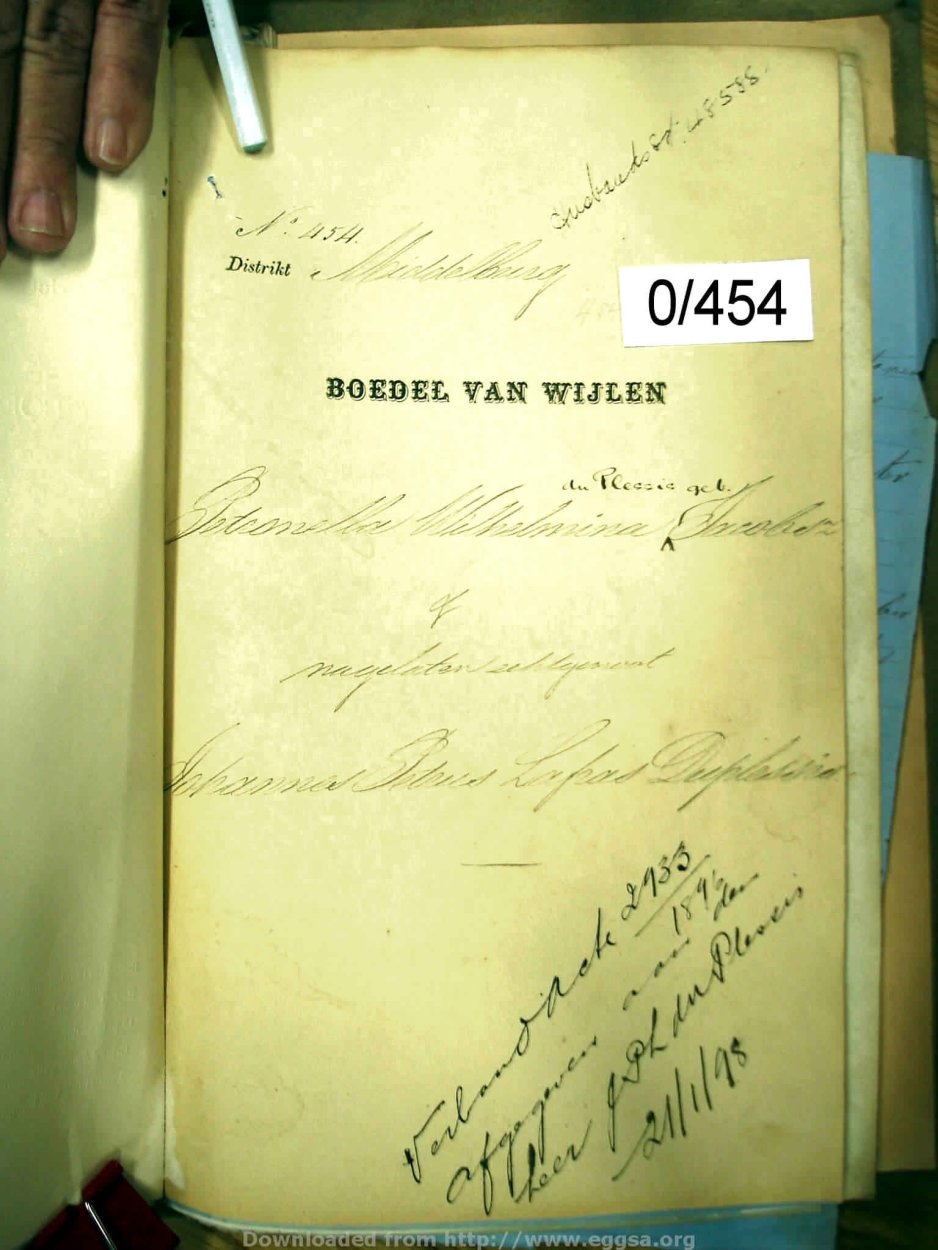 Husbands est. 48588.
No. 454.
Distrikt Middelburg
0/454
BOEDEL VAN WIJLEN
du Plessis geb.
Petronella Wilhelmina Jacobsz
of
nagelaten echtgenoot
Johannes Petrus Lafras Duplessis
Verband Acte 2933
1896
afgegeven aan den
heer J P L du Plessis
21/1/98
Downloaded from http://www.eggsa.org